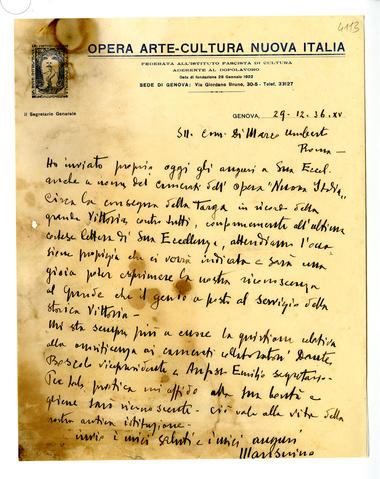 4113
OPERA ARTE-CULTURA NUOVA ITALIA
FEDERATA ALL'ISTITUTO FASCISTA DI CULTURA
ADERENTE AL DOPOLAVORO
Data di fondazione 28 Gennaio 1922
SEDE DI GENOVA: Via Giordano Bruno, 30-5 - Telef. 33127
Il Segretario Generale
GENOVA, 29-12.36.XV
Ill. Com. Di Marzo Umberto
Roma -
Ho inviato proprio oggi gli auguri a Sua Eccel.
anche a nome dei camerati dell'Opera "Nuova Italia"
Circa la consegna della Targa in ricordo della
grande Vittoria contro tutti, conformemente all'ultima
cortese lettera di Sua Eccellenza, attendiamo l'occa
sione propizia che ci verrà indicata e sarà una
gioia poter esprimere la nostra riconoscenza
al Grande che il genio a posto al servizio della
storica Vittoria -
Mi sta sempre più a cuore la quistione relativa
alla onorificenza ai camerati collaboratori Dante
Boscolo vicepresidente e Emilio segretario -
Per tale pratica mi affido alla Sua bontà e
gliene sarò riconoscente - ciò vale alla vita della
nostra antica istituzione -
invio i miei saluti e i miei auguri